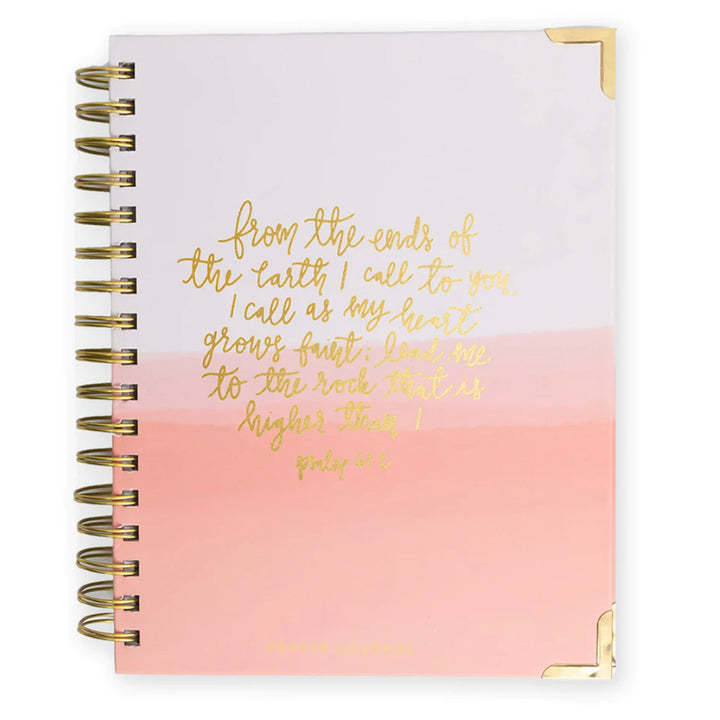 from the ends of
the earth I call to you.
I call as my heart
grows faint; lead me
to the rock that is
higher than I
psalm 61:2
PRAYER JOURNAL